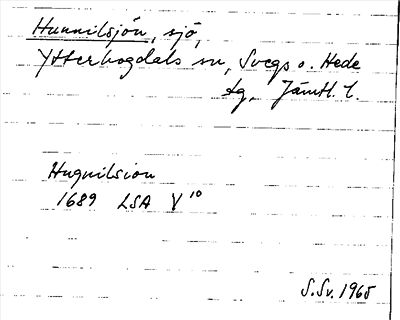 Hunnilsjön, sjö,
Ytterhogdals sn, Svegs o. Hede
tg, Jämtl. l.
Hugnilsion
1689 LSA V 10
S.Sv. 1965